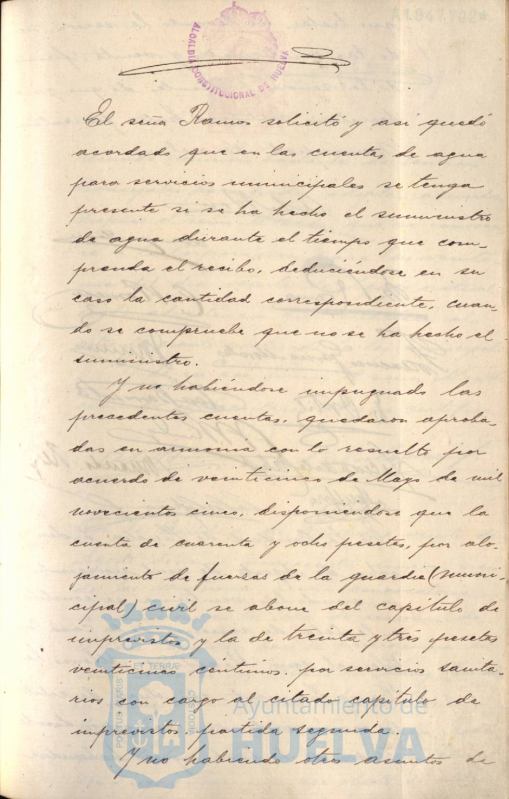 A1.947.792*
ALCALDIA CONSTITUCIONAL DE HUELVA
El señor Ramos solicitó y asi quedó
acordado que en las cuentas de agua
para servicios municipales se tenga
presente si se ha hecho el suministro
de agua durante el tiempo que com-
prenda el recibo, deduciéndose en su
caso la cantidad correspondiente, cuan-
do se compruebe que no se ha hecho el
suministro.
Y no habiéndose impugnado las
precedentes cuentas, quedaron aproba-
das en armonia con lo resuelto por
acuerdo de veinticinco de Mayo de mil
novecientos cinco, disponiendose que la
cuenta de cuarenta y ocho pesetas, por alo-
jamiento de fuerzas de la guardia (muni-
cipal) civil se abone del capitulo de
imprevistos y la de treinta y tres pesetas
veinticinco centimos, por servicios sanita-
rios con cargo al citado capitulo de
imprevistos, partida segunda.
Y no habiendo otros asuntos de
Ayuntamiento de
HUELVA